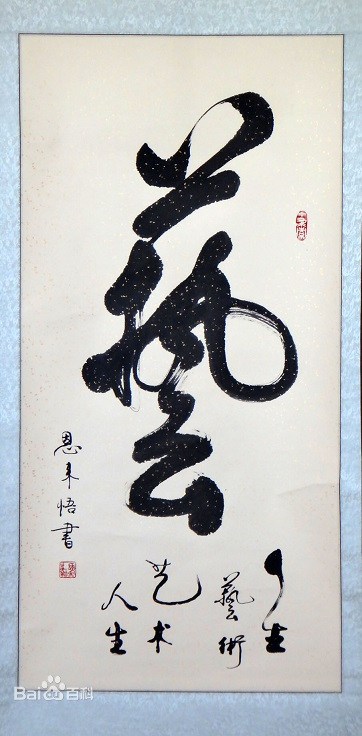 藝
人生
藝術
艺术
人生
恩来悟書
Bai百科